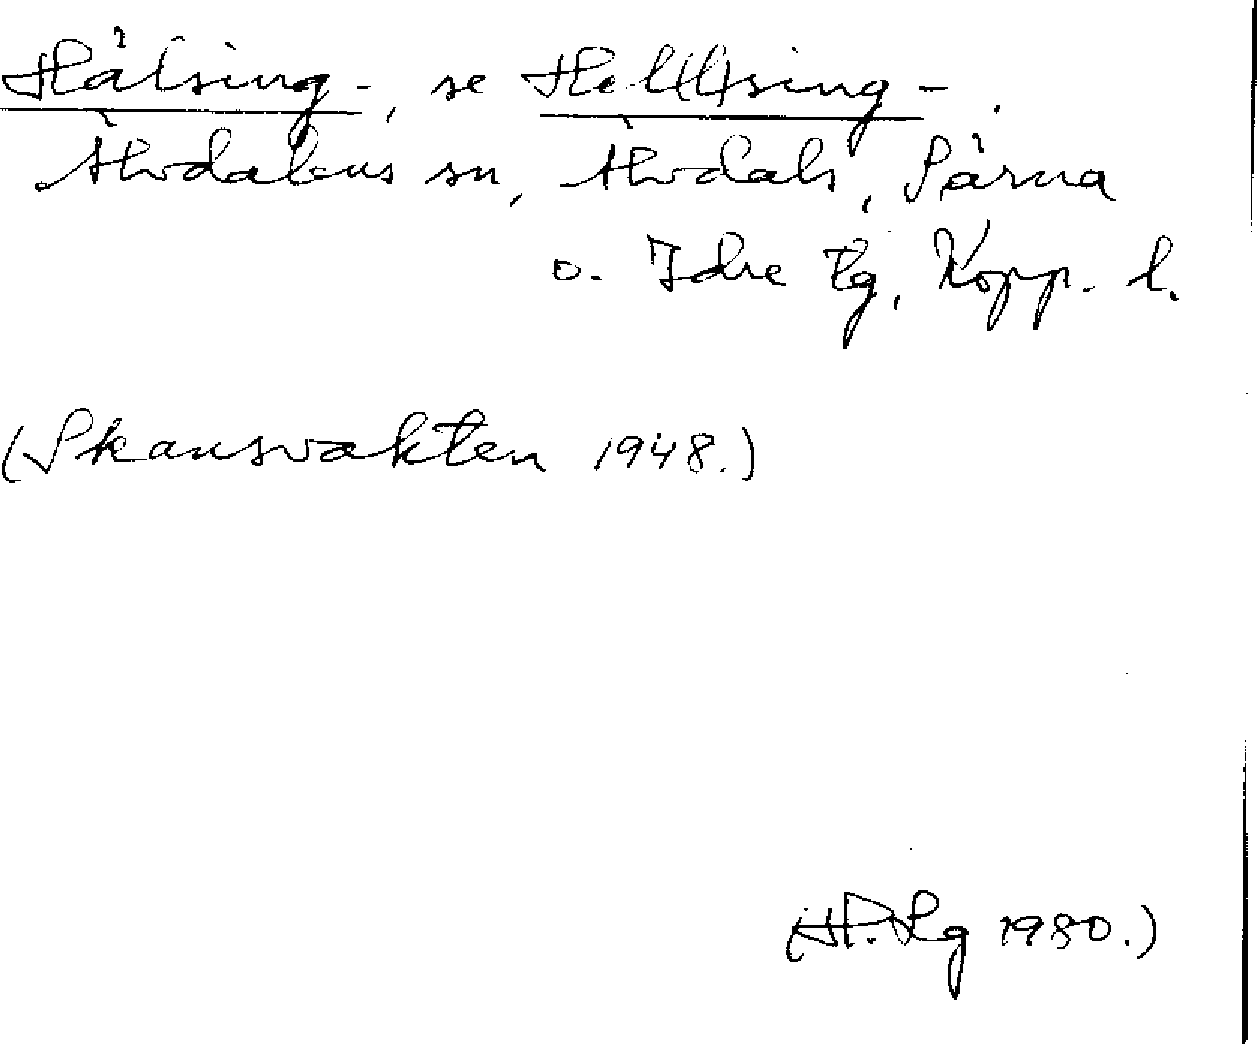 Hälsing-, se Hel(l)sing-.
Älvdalens sn, Älvdals, Särna
o. Idre tg, Kopp. l.
(Skansvakten 1948.)
1980.)